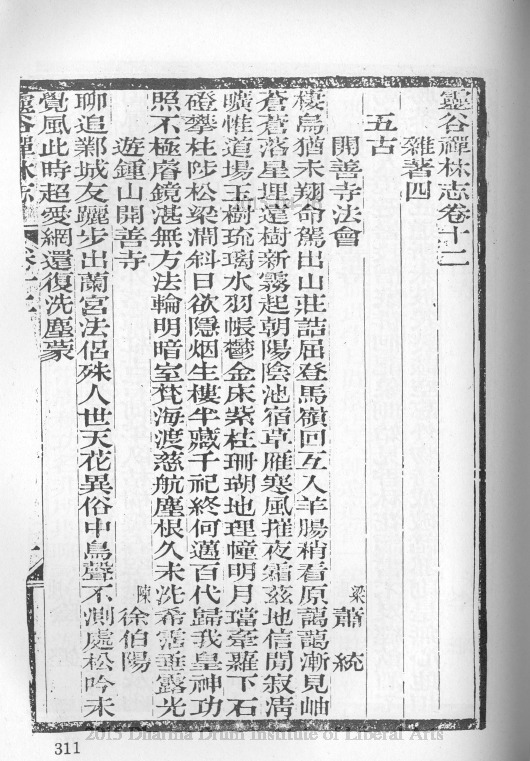 靈谷禪林志卷十二
雜著四
五古
開善寺法會 梁 蕭統
棲鳥猶未翔命駕出山莊詰屈登馬嶺回互入羊腸稍看原藹藹漸見岫
蒼蒼落星埋遠樹新霧起朝陽陰池宿草雁寒風摧夜霜茲地信閒寂清
曠惟道場玉樹琉璃水羽帳鬱金床紫柱珊瑚地理幢明月璫牽蘿下石
磴攀桂陟松梁澗斜日欲隱烟生樓半藏千祀終何邁百代歸我皇神功
照不極睿鏡湛無方法輪明暗室梵海渡慈航塵根久未洗希霑垂露光
遊鍾山開善寺 陳 徐伯陽
聊追鄴城友躧步出蘭宮法侶殊人世天花異俗中鳥聲不測處松吟未
覺風此時超愛網還復洗塵蒙
靈谷禪林志
311
2013 Dharma Drum Institute of Liberal Arts